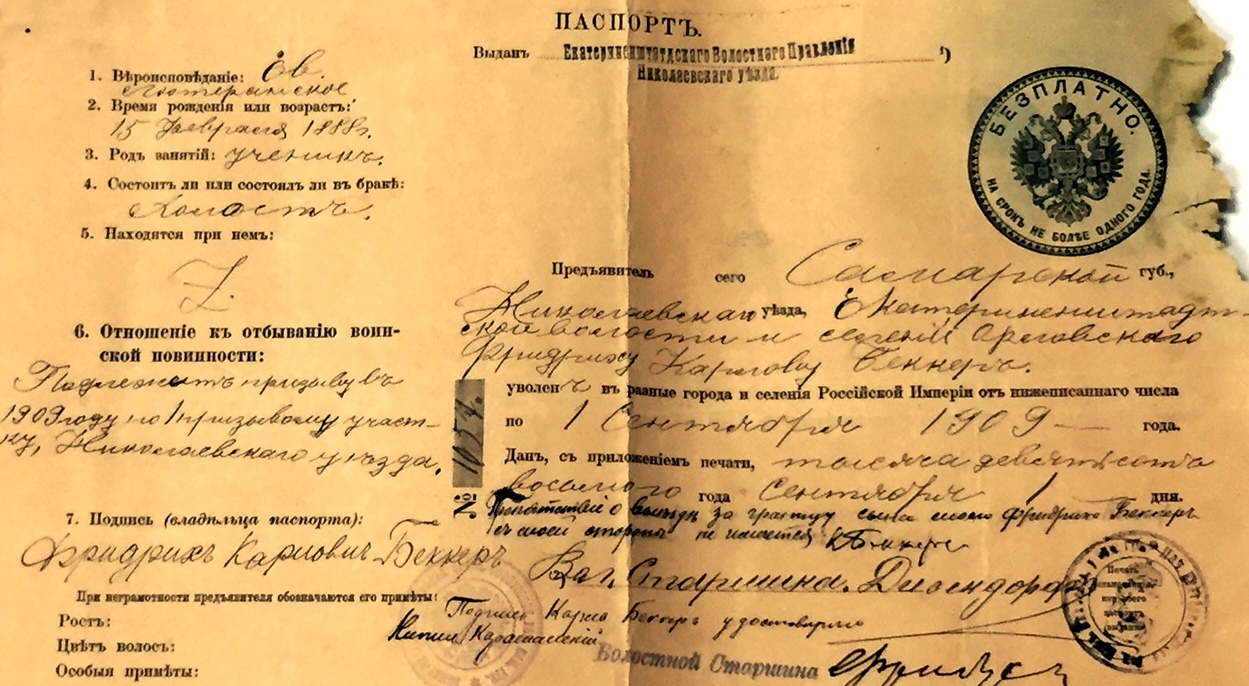 ПАСПОРТЪ.
Выданъ Екатериненштадтскаго Волостного Правленія ¹)
Николаевскаго уѣзда.
1. Вѣроисповѣданіе: Ев.
лютеранское
2. Время рожденія или возрастъ:
15 Февраля 1888г.
3. Родъ занятій: ученикъ.
4. Состоитъ ли или состоялъ ли въ бракѣ:
Холостъ.
5. Находятся при немъ:
Z.
6. Отношеніе къ отбыванію воин-
ской повинности:
Подлежитъ призыву въ
1909 году по 1 призывному участ-
ку, Николаевскаго уѣзда.
7. Подпись (владѣльца паспорта):
Фридрихъ Карловичъ Беккеръ
При неграмотности предъявителя обозначаются его примѣты:
Ростъ:
Цвѣтъ волосъ:
Особыя примѣты:
БЕЗПЛАТНО.
НА СРОКЪ НЕ БОЛѢЕ ОДНОГО ГОДА.
Предъявитель сего Самарской губ.,
Николаевскаго уѣзда, Екатериненштадт-
ской волости и селенія Орловскаго
Фридрихъ Карловъ Беккеръ.
уволенъ въ разные города и селенія Россійской Имперіи отъ нижеписаннаго числа
по 1 Сентября 1909 года.
Данъ, съ приложеніемъ печати, тысяча девятьсотъ
восьмого года Сентября 1 дня.
№ 1054.
Препятствіе о выѣздѣ за границу сына моего Фридриха Беккеръ
съ моей стороны не имѣется К Беккеръ
Вол. Старшина.
Подпись Карла Беккеръ удостовѣряю
Волостной Старшина
Печать